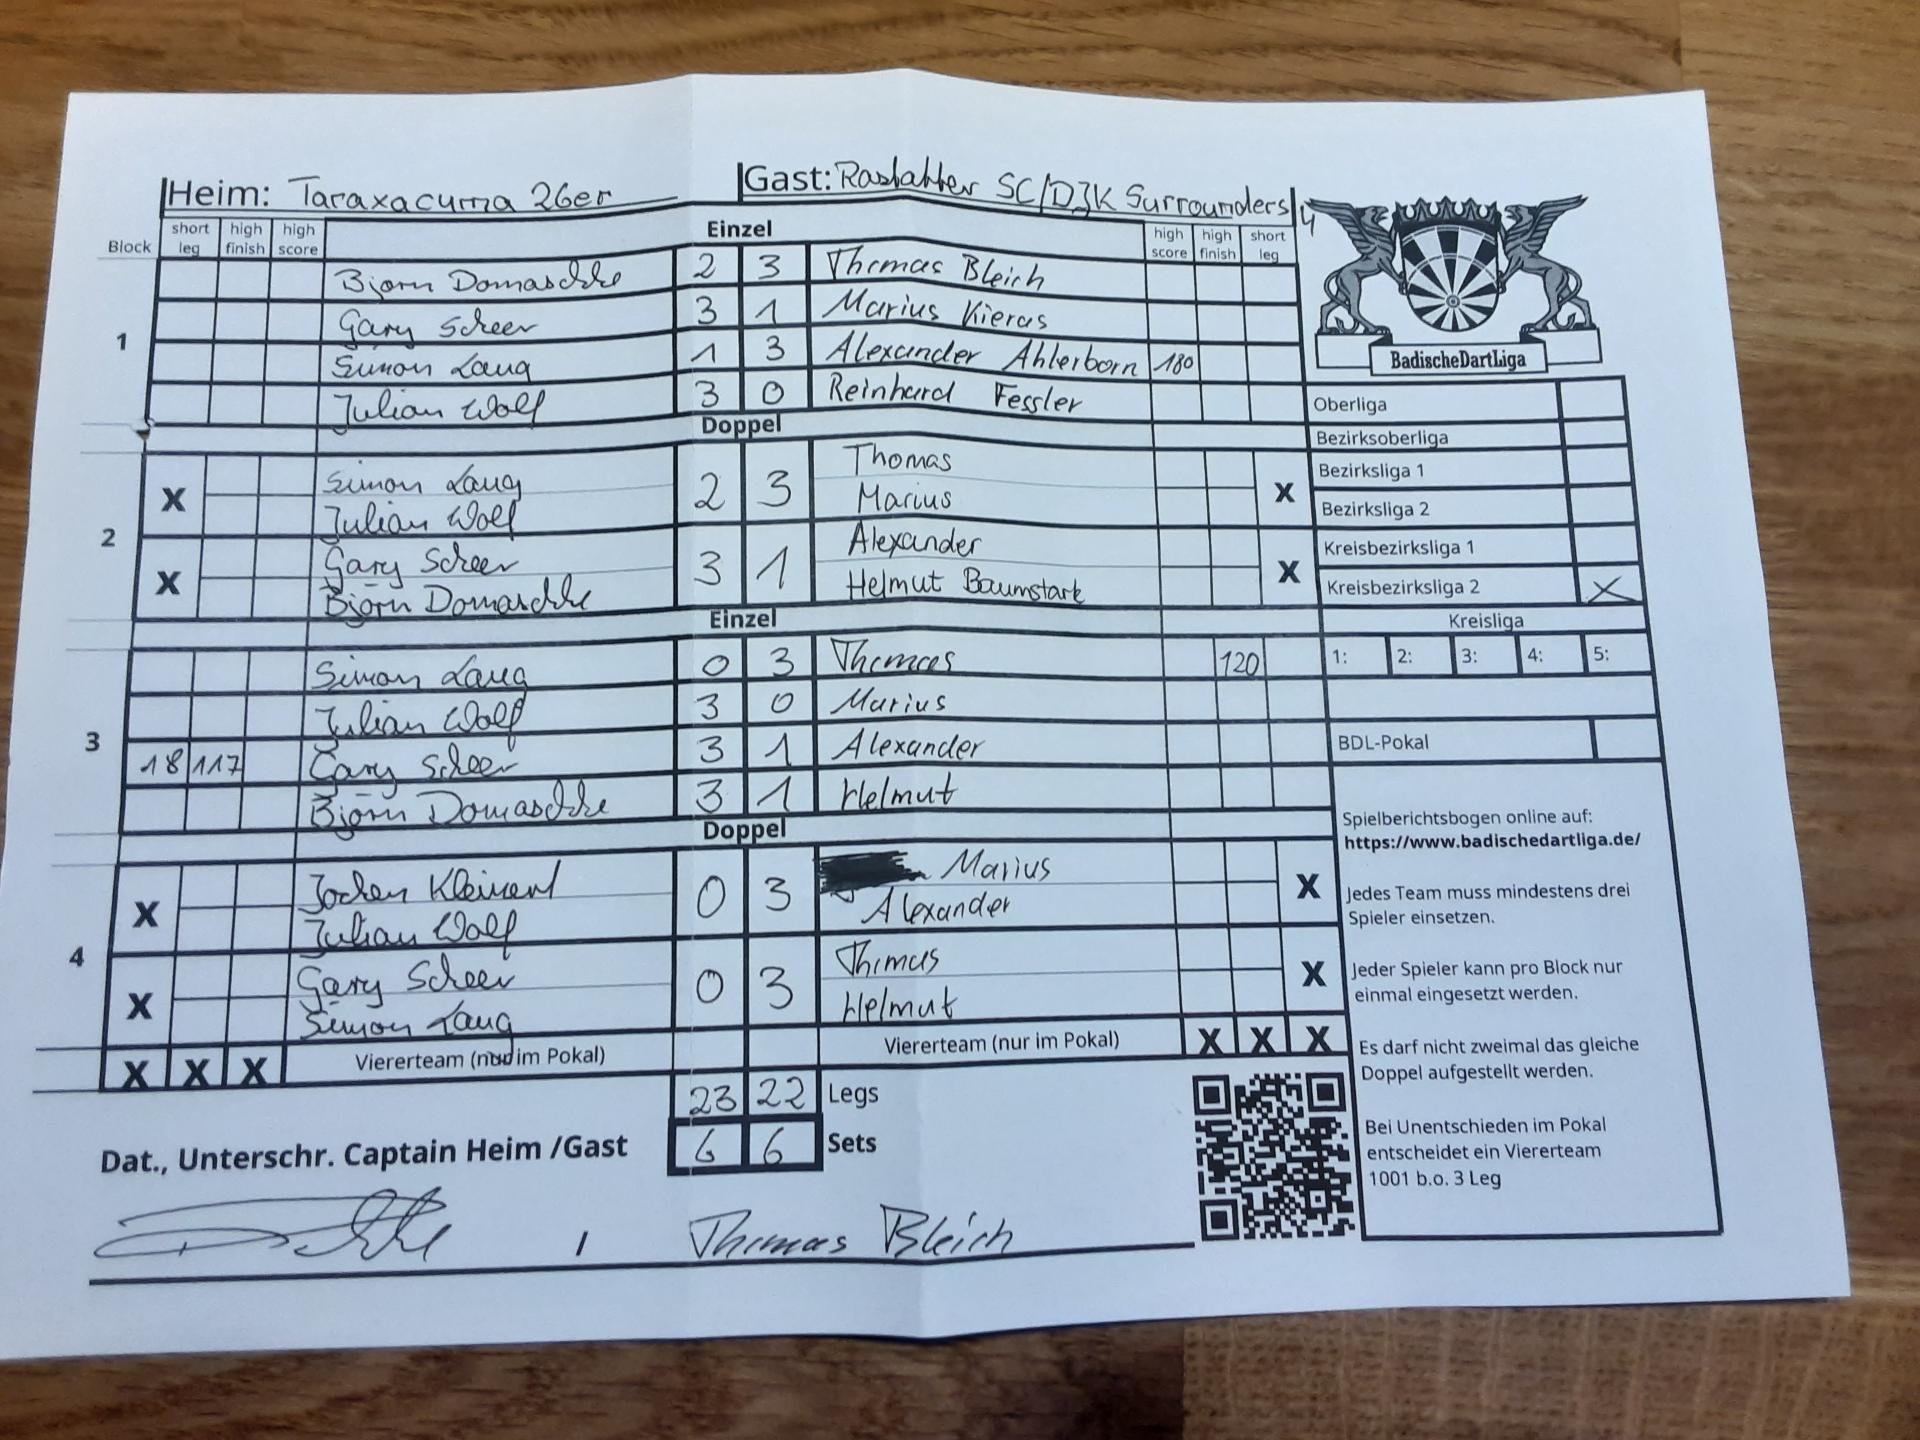 Heim: Taraxacuma 26er Gast: Rastatter SC/DJK Surrounders 4
Block short leg high finish high score Einzel high score high finish short leg
1
Björn Domaschke 2 3 Thomas Bleich
Gary Scheer 3 1 Marius Kieras
Simon Laug 1 3 Alexander Ahlerborn 180
Julian Wolf 3 0 Reinhard Fessler
Doppel
2
X Simon Laug 2 3 Thomas X
Julian Wolf Marius
X Gary Scheer 3 1 Alexander X
Björn Domaschke Helmut Baumstark
Einzel
3
Simon Laug 0 3 Thomas 120
Julian Wolf 3 0 Marius
18 117 Gary Scheer 3 1 Alexander
Björn Domaschke 3 1 Helmut
Doppel
4
X Jochen Kleinert 0 3 Marius X
Julian Wolf Alexander
X Gary Scheer 0 3 Thomas X
Simon Laug Helmut
X X X Viererteam (nur im Pokal) Viererteam (nur im Pokal) X X X
23 22 Legs
6 6 Sets
Dat., Unterschr. Captain Heim /Gast
/ Thomas Bleich
BadischeDartLiga
Oberliga
Bezirksoberliga
Bezirksliga 1
Bezirksliga 2
Kreisbezirksliga 1
Kreisbezirksliga 2 X
Kreisliga
1: 2: 3: 4: 5:
BDL-Pokal
Spielberichtsbogen online auf:
https://www.badischedartliga.de/
Jedes Team muss mindestens drei
Spieler einsetzen.
Jeder Spieler kann pro Block nur
einmal eingesetzt werden.
Es darf nicht zweimal das gleiche
Doppel aufgestellt werden.
Bei Unentschieden im Pokal
entscheidet ein Viererteam
1001 b.o. 3 Leg